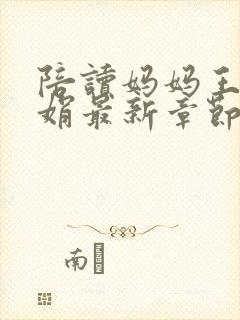 陪讀妈妈王
娟最新章節
南